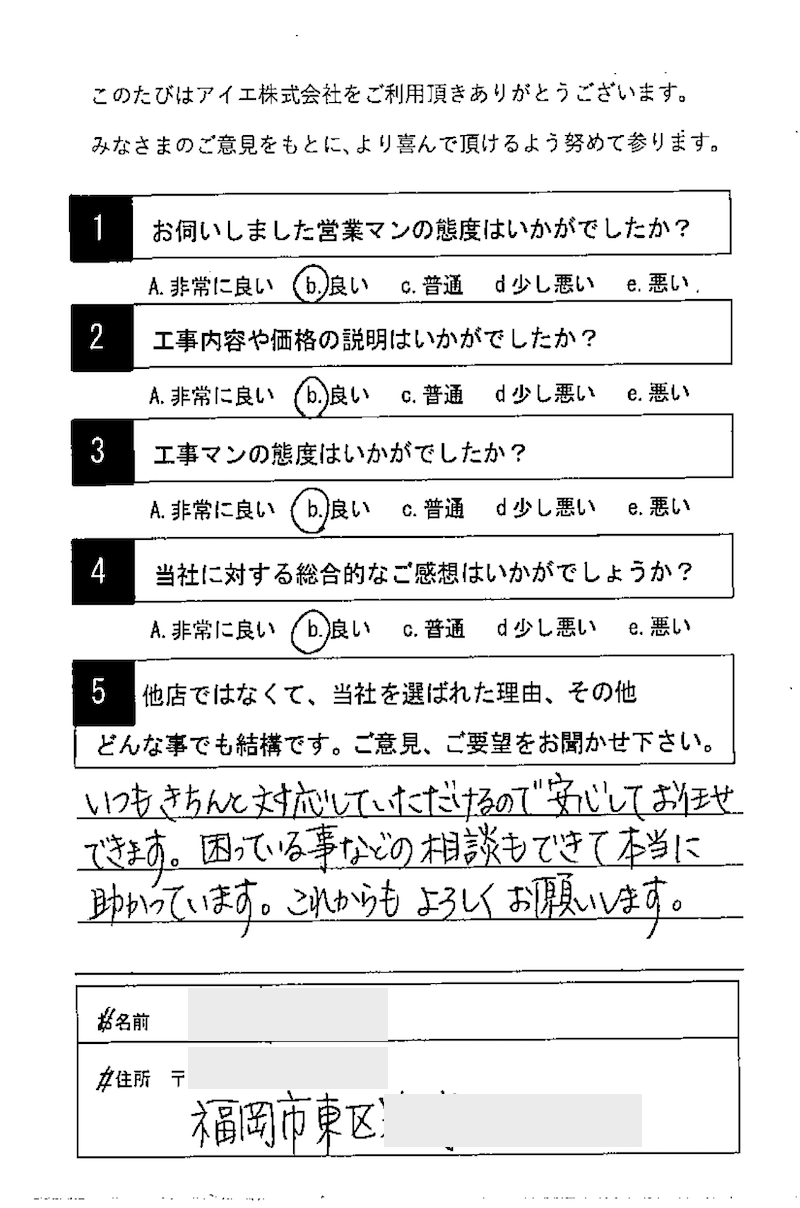 このたびはアイエ株式会社をご利用頂きありがとうございます。
みなさまのご意見をもとに、より喜んで頂けるよう努めて参ります。
1 お伺いしました営業マンの態度はいかがでしたか？
A. 非常に良い b. 良い c. 普通 d 少し悪い e. 悪い
2 工事内容や価格の説明はいかがでしたか？
A. 非常に良い b. 良い c. 普通 d 少し悪い e. 悪い
3 工事マンの態度はいかがでしたか？
A. 非常に良い b. 良い c. 普通 d 少し悪い e. 悪い
4 当社に対する総合的なご感想はいかがでしょうか？
A. 非常に良い b. 良い c. 普通 d 少し悪い e. 悪い
5 他店ではなくて、当社を選ばれた理由、その他
どんな事でも結構です。ご意見、ご要望をお聞かせ下さい。
いつもきちんと対応していただけるので安心してお任せ
できます。困っている事などの相談もできて本当に
助かっています。これからもよろしくお願いします。
お名前
お住所 〒
福岡市東区